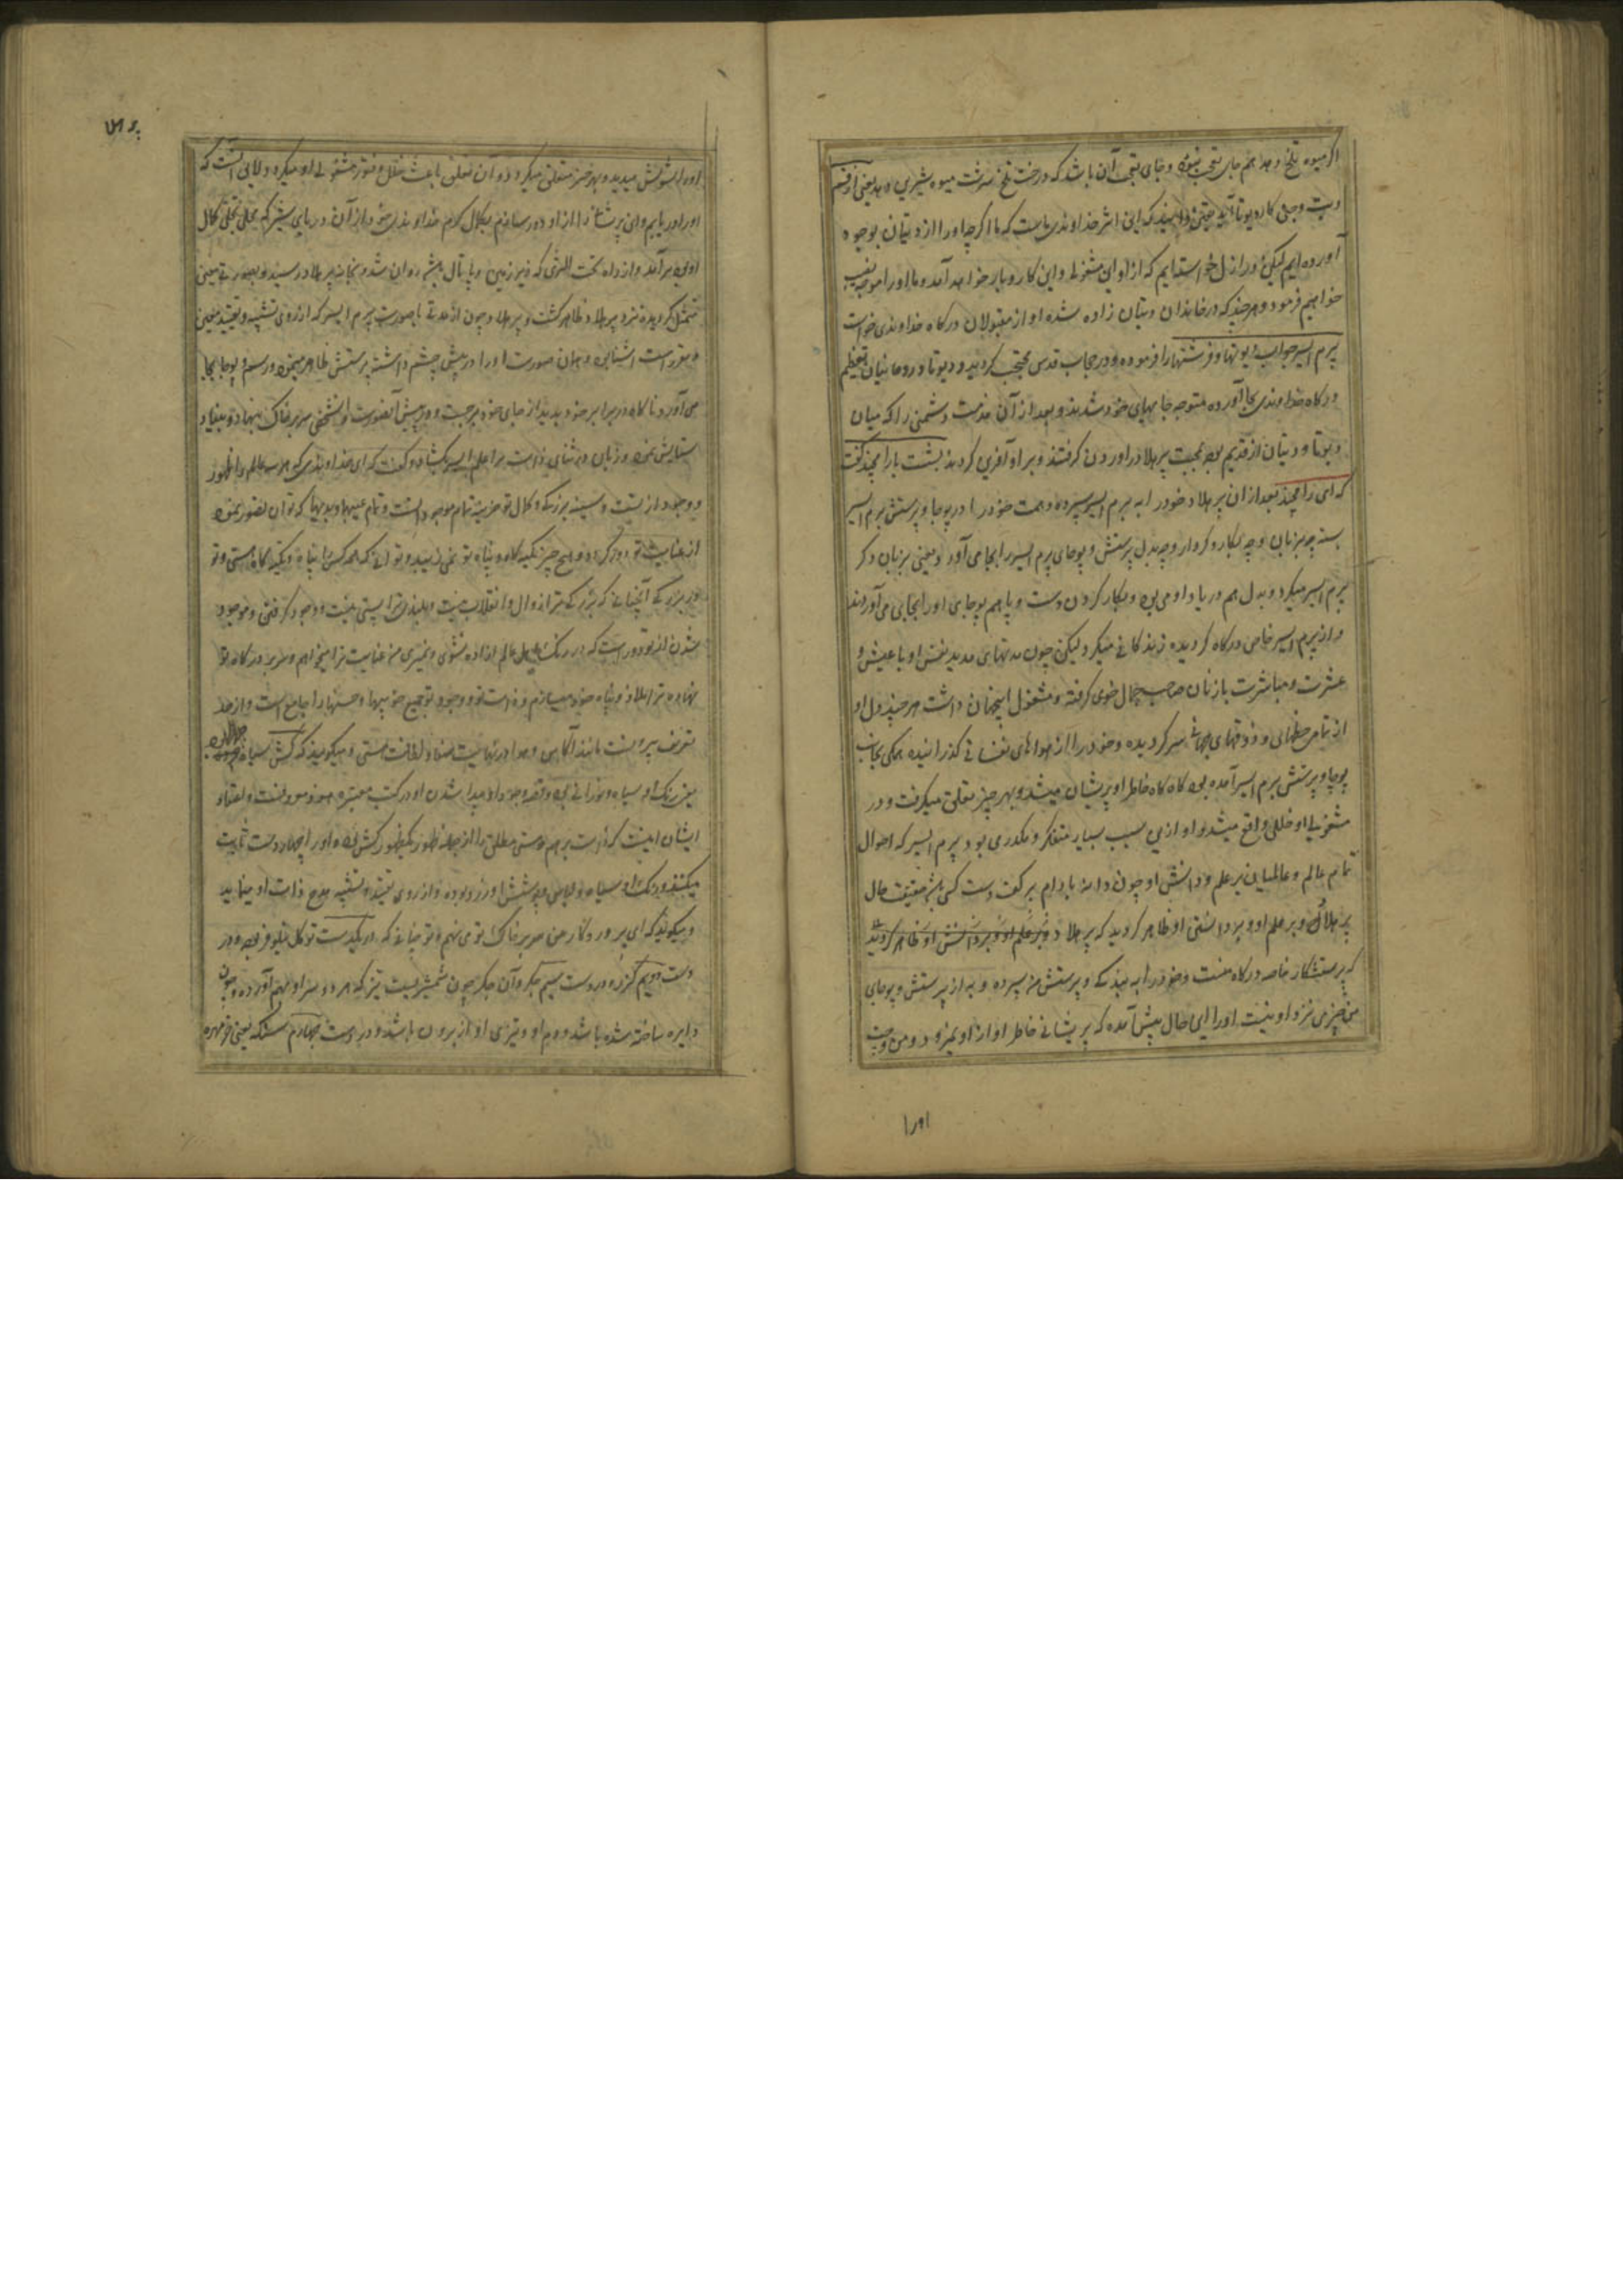 اکر میوه تلخ دهد هم جای تعجب نبود و جای تعجب آن باشد که درخت تلخ سرشت میوه شیرین دهد یعنی از قسم
دیت و جن کار دیوتا آید یقین دانید که این اثر خداوندی ماست که ما اکرچه او را از دیتیان بوجود
آورده ایم لیکن در ازل خواسته ایم که از او این مشغولی و این کار و بار خواهد آمد و ما او را موجب نصیب
خواهیم فرمود و هر چند که در خاندان دیتان زاده شده او از مقبولان درکاه خداوندی خواست
پرم ایسر جواب دیوتها و فرشتهها را فرموده و در حجاب قدس محتجب کردید و دیوتا و روحانیان تعظیم
درکاه خداوندی بجا آورده متوجه جایهای خود شدند و بعد از آن مذمت دشمنی را که میان
دیوتا و دیتان از قدیم بود بمحبت پرهلاد در اوردن کرفتند و بر او آفرین کردند بشست با رامچند کفت
که ای رامچند بعد از ان پرهلاد خود را به پرم ایسر سپرده و همت خود را در پوجا و پرستش پرم ایسر
بسته چه بزبان و چه بکار و کردار و چه بدل پرستش و پوجای پرم ایسر را بجا می آورد یعنی بزبان ذکر
پرم ایسر میکرد و بدل هم در یاد او می بود و بکار کردن دست و پا هم پوجای او را بجا می آوردند
و از پرم ایسر خاص درکاه کردیده زندکانی میکرد لیکن چون مدتهای مدید نفس او با عیش و
عشرت و مباشرت با زنان صاحب جمال خوی کرفته و مشغول اینجهان داشت هر چند دل او
از تمامی حظهای و ذوقهای جهانی سیر کردیده و خود را از هواهای نفسانی کذرانیده همکی بجانب
پوجا و پرستش پرم ایسر آمده بود کاه کاه خاطر او پریشان میشد و بهر چیز تعلق میکرفت و در
مشغولی او خللی واقع میشد و او ازین سبب بسیار متفکر و مکدر می بود پرم ایسر که احوال
تمام عالم و عالمیان بر علم و دانش او چون دانه بادام بر کف دست کسی باشد حقیقت حال
پرهلاد و بر علم او و بر دانش او ظاهر کردید که پرهلاد و بر علم او و بر دانش او ظاهر کردید
که پرستشکار خاصه درکاه منست و خود را به بندکی و پرستش من سپرده و به از پرستش و پوجای
من چیزی نزد او نیست او را این حال پیش آمده که پریشانی خاطر او از او نمیرود و من
او را
او را تشویش میدید و بهر چیز متعلق میکردد و آن تعلق باعث خلل و فتور مشغولی او میکردد لایق آنست که
او را دریابیم و این پریشانی را از او دور سازم بکمال کرم خداوندی خود از آن دریای شیر که محل تجلی کمال
او بود برآمد و از راه تحت الثری که زیر زمین و پاتال باشد روان شد و بخانه پرهلاد رسید و بصورت معین
متمثل کردیده نزد پرهلاد ظاهر کشت و پرهلاد چون از مدتی با صورت پرم ایسر که از روی تشبیه و تقیید معین
و مقرر است آشنا بود و همان صورت او را در پیش چشم داشته پرستش ظاهر مینمود و رسم پوجا بجا
می آورد ناکاه در برابر خود بدید از جای خود برجست و در پیش آنصورت سر بر خاک نهاد و بنیاد
ستایش نمود و زبان در ثنای ذات پرم ایسر کشاد و کفت که ای خداوندی که هر سه عالم را ظهور
و وجود از تست و سینه بزرکی و کمال تو خزینه تمام موجود است و تمام عیبها و بدیها که توان تصور نمود
از عنایت تو دور کردد و هیچ چیز تکیه کاه و پناه تو نمی زیبد و تو آنی که همه کس را پناه و تکیه کاه هستی و تو
در بزرکی آنچنانی که بزرکی ترا زوال و انقلاب نیست و بلندی ترا پستی نیست و وجود کرفتن و موجود
شدن از تو دور است که در رنک اهل عالم زاده نشوی و نمیری من عنایت ترا میخواهم و سر بر درکاه تو
نهاده ترا ملاذ و پناه خود میسازم و ذات تو و وجود تو جمیع خوبیها و حسنها را جامع است و از حد
تعریف بیرونست مانند آکاس و هوا در نهایت صفا و لطافت هستی و میکویند که کشن سیاه فام بود
یعنی رنک او سیاه و نورانی بود و قصه وجود او و پیدا شدن او در کتب معتبره هنود معروفست و اعتقاد
ایشان اینست که ذات برهم و هستی مطلق را از جمله ظهور یک ظهور کشن بود و او را چهار دست ثابت
میکنند و رنک او سیاه و لباس و پوشش او زرد بوده و از روی تقیید و تشبیه مدح ذات او مینماید
و میکویند که ای پروردکار من سر بر خاک تو می نهم و تو چنانی که در یکدست تو کل نیلوفر بود و در
دست دویم کرز و در دست سیم چکر و آن چکر چون شمشیریست تیز که هر دو سر او بهم آورده و چون
دایره ساخته شده باشد و دم او و تیزی او از برون باشد و در دست چهارم سنکه یعنی خرمهره